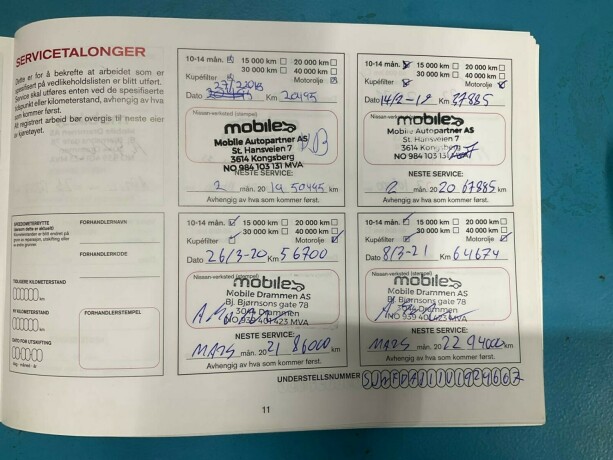 SERVICETALONGER
Dette er for å bekrefte at arbeidet som er
spesifisert på vedlikeholdslisten er blitt utført.
Service skal utføres enten ved de spesifiserte
tidspunkt eller kilometerstand, avhengig av hva
som kommer først.
registrert arbeid bør overgis til neste eier
kjøretøyet.
SPEEDOMETERBYTTE
FORHANDLERNAVN
FORHANDLERKODE
TIDLIGERE KILOMETERSTAND
km
NY KILOMETERSTAND
km
DATO FOR UTSKIFTING
dag - måned - år
FORHANDLERSTEMPEL
10-14 mån. 15 000 km 20 000 km
30 000 km 40 000 km
Kupéfilter Motorolje
Dato Km 20495
Nissan-verksted (stempel)
mobile
Mobile Autopartner AS
St. Hansveien 7
3614 Kongsberg
NO 984 103 131 MVA
NESTE SERVICE:
2 mån. 20 19 50495 km
Avhengig av hva som kommer først.
10-14 mån. 15 000 km 20 000 km
30 000 km 40 000 km
Kupéfilter Motorolje
Dato 14/2-19 Km 37885
Nissan-verksted (stempel)
mobile
Mobile Autopartner AS
St. Hansveien 7
3614 Kongsberg
NO 984 103 131
NESTE SERVICE:
2 mån. 20 20 67885 km
Avhengig av hva som kommer først.
10-14 mån. 15 000 km 20 000 km
30 000 km 40 000 km
Kupéfilter Motorolje
Dato 26/3-20 Km 56700
Nissan-verksted (stempel)
mobile
Mobile Drammen AS
Bj. Bjørnsons gate 78
3044 Drammen
NO 939 401 423 MVA
NESTE SERVICE:
MARS mån. 20 21 86000 km
Avhengig av hva som kommer først.
10-14 mån. 15 000 km 20 000 km
30 000 km 40 000 km
Kupéfilter Motorolje
Dato 8/3-21 Km 64674
Nissan-verksted (stempel)
mobile
Mobile Drammen AS
Bj. Bjørnsons gate 78
3044 Drammen
NO 939 401 423 MVA
NESTE SERVICE:
MARS mån. 20 22 94000 km
Avhengig av hva som kommer først.
UNDERSTELLSNUMMER
11